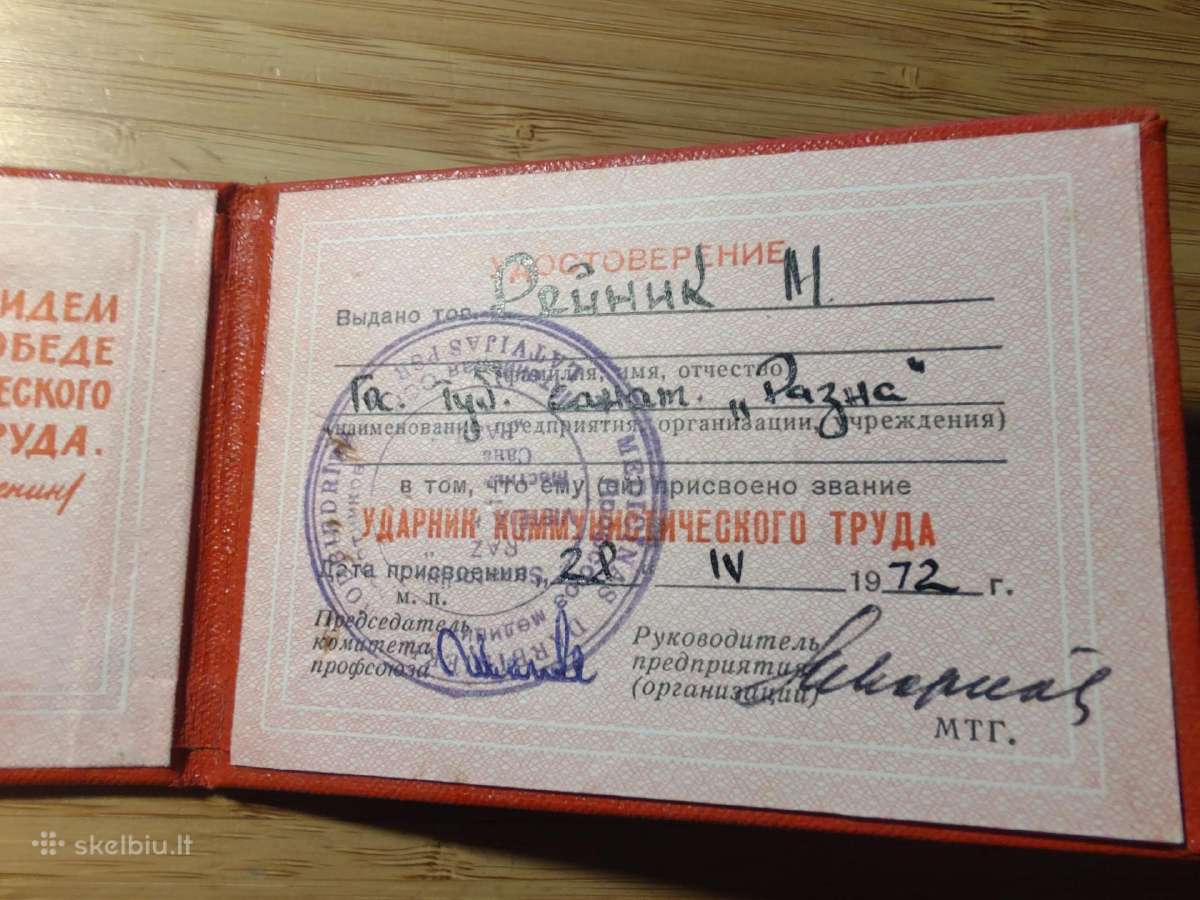 ИДЕМ
ОБЕДЕ
ЕСКОГО
РУДА.
енин
УДОСТОВЕРЕНИЕ
Выдано тов. Рейник М.
фамилия, имя, отчество
Гос. Туб. санат. „Разна"
(наименование предприятия, организации, учреждения)
в том, что ему (ей) присвоено звание
УДАРНИК КОММУНИСТИЧЕСКОГО ТРУДА
Дата присвоения „28 IV 1972 г.
м. п.
Председатель
комитета
профсоюза
Руководитель
предприятия
(организации)
МТГ.
LATVIJAS PSR
MEDICINAS
skelbiu.lt